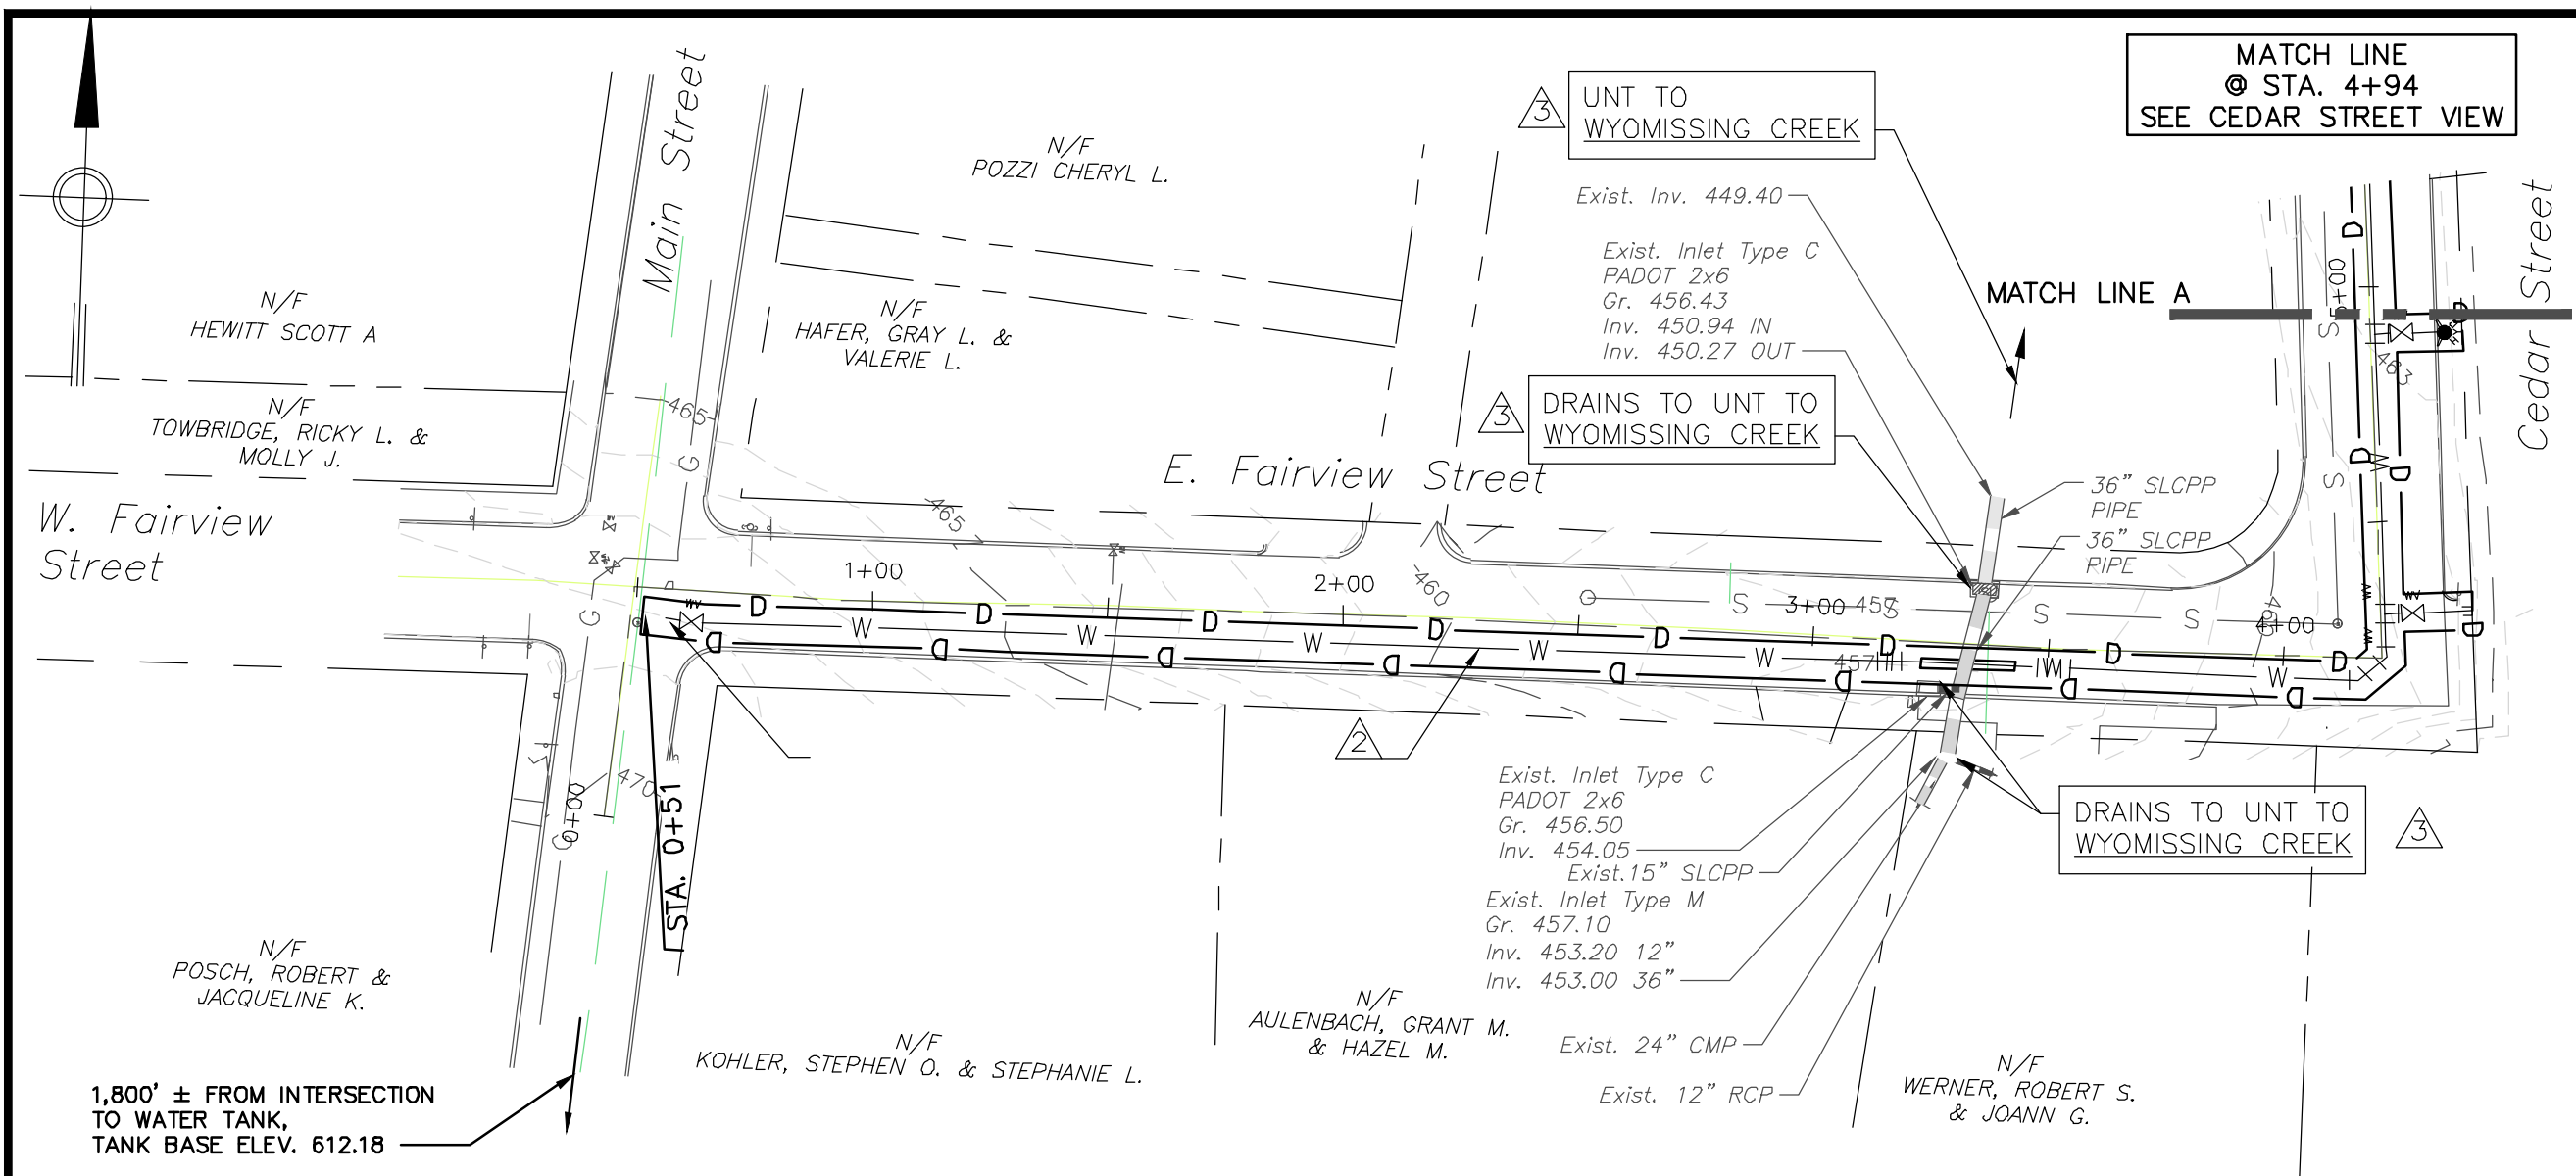 MATCH LINE
@ STA. 4+94
SEE CEDAR STREET VIEW
3
UNT TO
WYOMISSING CREEK
Main Street
N/F
POZZI CHERYL L.
Exist. Inv. 449.40
Exist. Inlet Type C
PADOT 2x6
Gr. 456.43
Inv. 450.94 IN
Inv. 450.27 OUT
Cedar Street
MATCH LINE A
5+00
463
N/F
HEWITT SCOTT A
N/F
HAFER, GRAY L. &
VALERIE L.
N/F
TOWBRIDGE, RICKY L. &
MOLLY J.
465
3
DRAINS TO UNT TO
WYOMISSING CREEK
E. Fairview Street
W. Fairview
Street
465
36" SLCPP
PIPE
36" SLCPP
PIPE
1+00
2+00
460
3+00
457
4+00
465
D D D D D D D D
W W W W W W W
D D D D D D D D
S S S S
S S
D D D D
W
G G G
457
2
470
0+00
STA. 0+51
Exist. Inlet Type C
PADOT 2x6
Gr. 456.50
Inv. 454.05
Exist.15" SLCPP
Exist. Inlet Type M
Gr. 457.10
Inv. 453.20 12"
Inv. 453.00 36"
Exist. 24" CMP
Exist. 12" RCP
DRAINS TO UNT TO
WYOMISSING CREEK
3
N/F
POSCH, ROBERT &
JACQUELINE K.
N/F
KOHLER, STEPHEN O. & STEPHANIE L.
N/F
AULENBACH, GRANT M.
& HAZEL M.
N/F
WERNER, ROBERT S.
& JOANN G.
1,800' ± FROM INTERSECTION
TO WATER TANK,
TANK BASE ELEV. 612.18